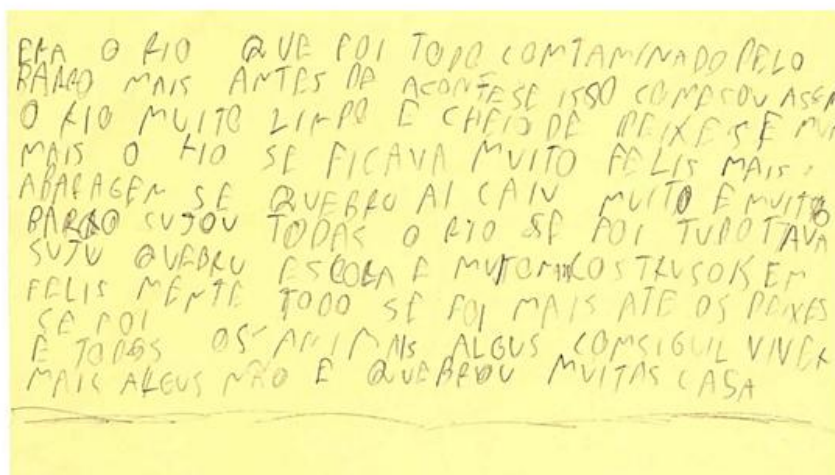 ERA O RIO QUE FOI TODO COMTAMINADO PELO
BARRO MAIS ANTES DE ACONTESE ISSO COMESOU ASEM
O RIO MUITO LIMPO E CHEIO DE PEIXES E MUI
MAIS O RIO SE FICAVA MUITO FELIS MAIS
ABARAGEM SE QUEBRO AI CAIU MUITO E MUITO
BARRO SUJOU TODAS O RIO SE FOI TUDO TAVA
SUJU QUEBRU ESCOLA E COSTRUSOIS EM
FELIS MENTE TODO SE FOI MAIS ATE OS PEIXES
SE FOI
E TODOS OS ANIMAIS ALGUS COMSIGUIL VIVER
MAIS ALGUS NÃO E QUEBROU MUITAS CASA